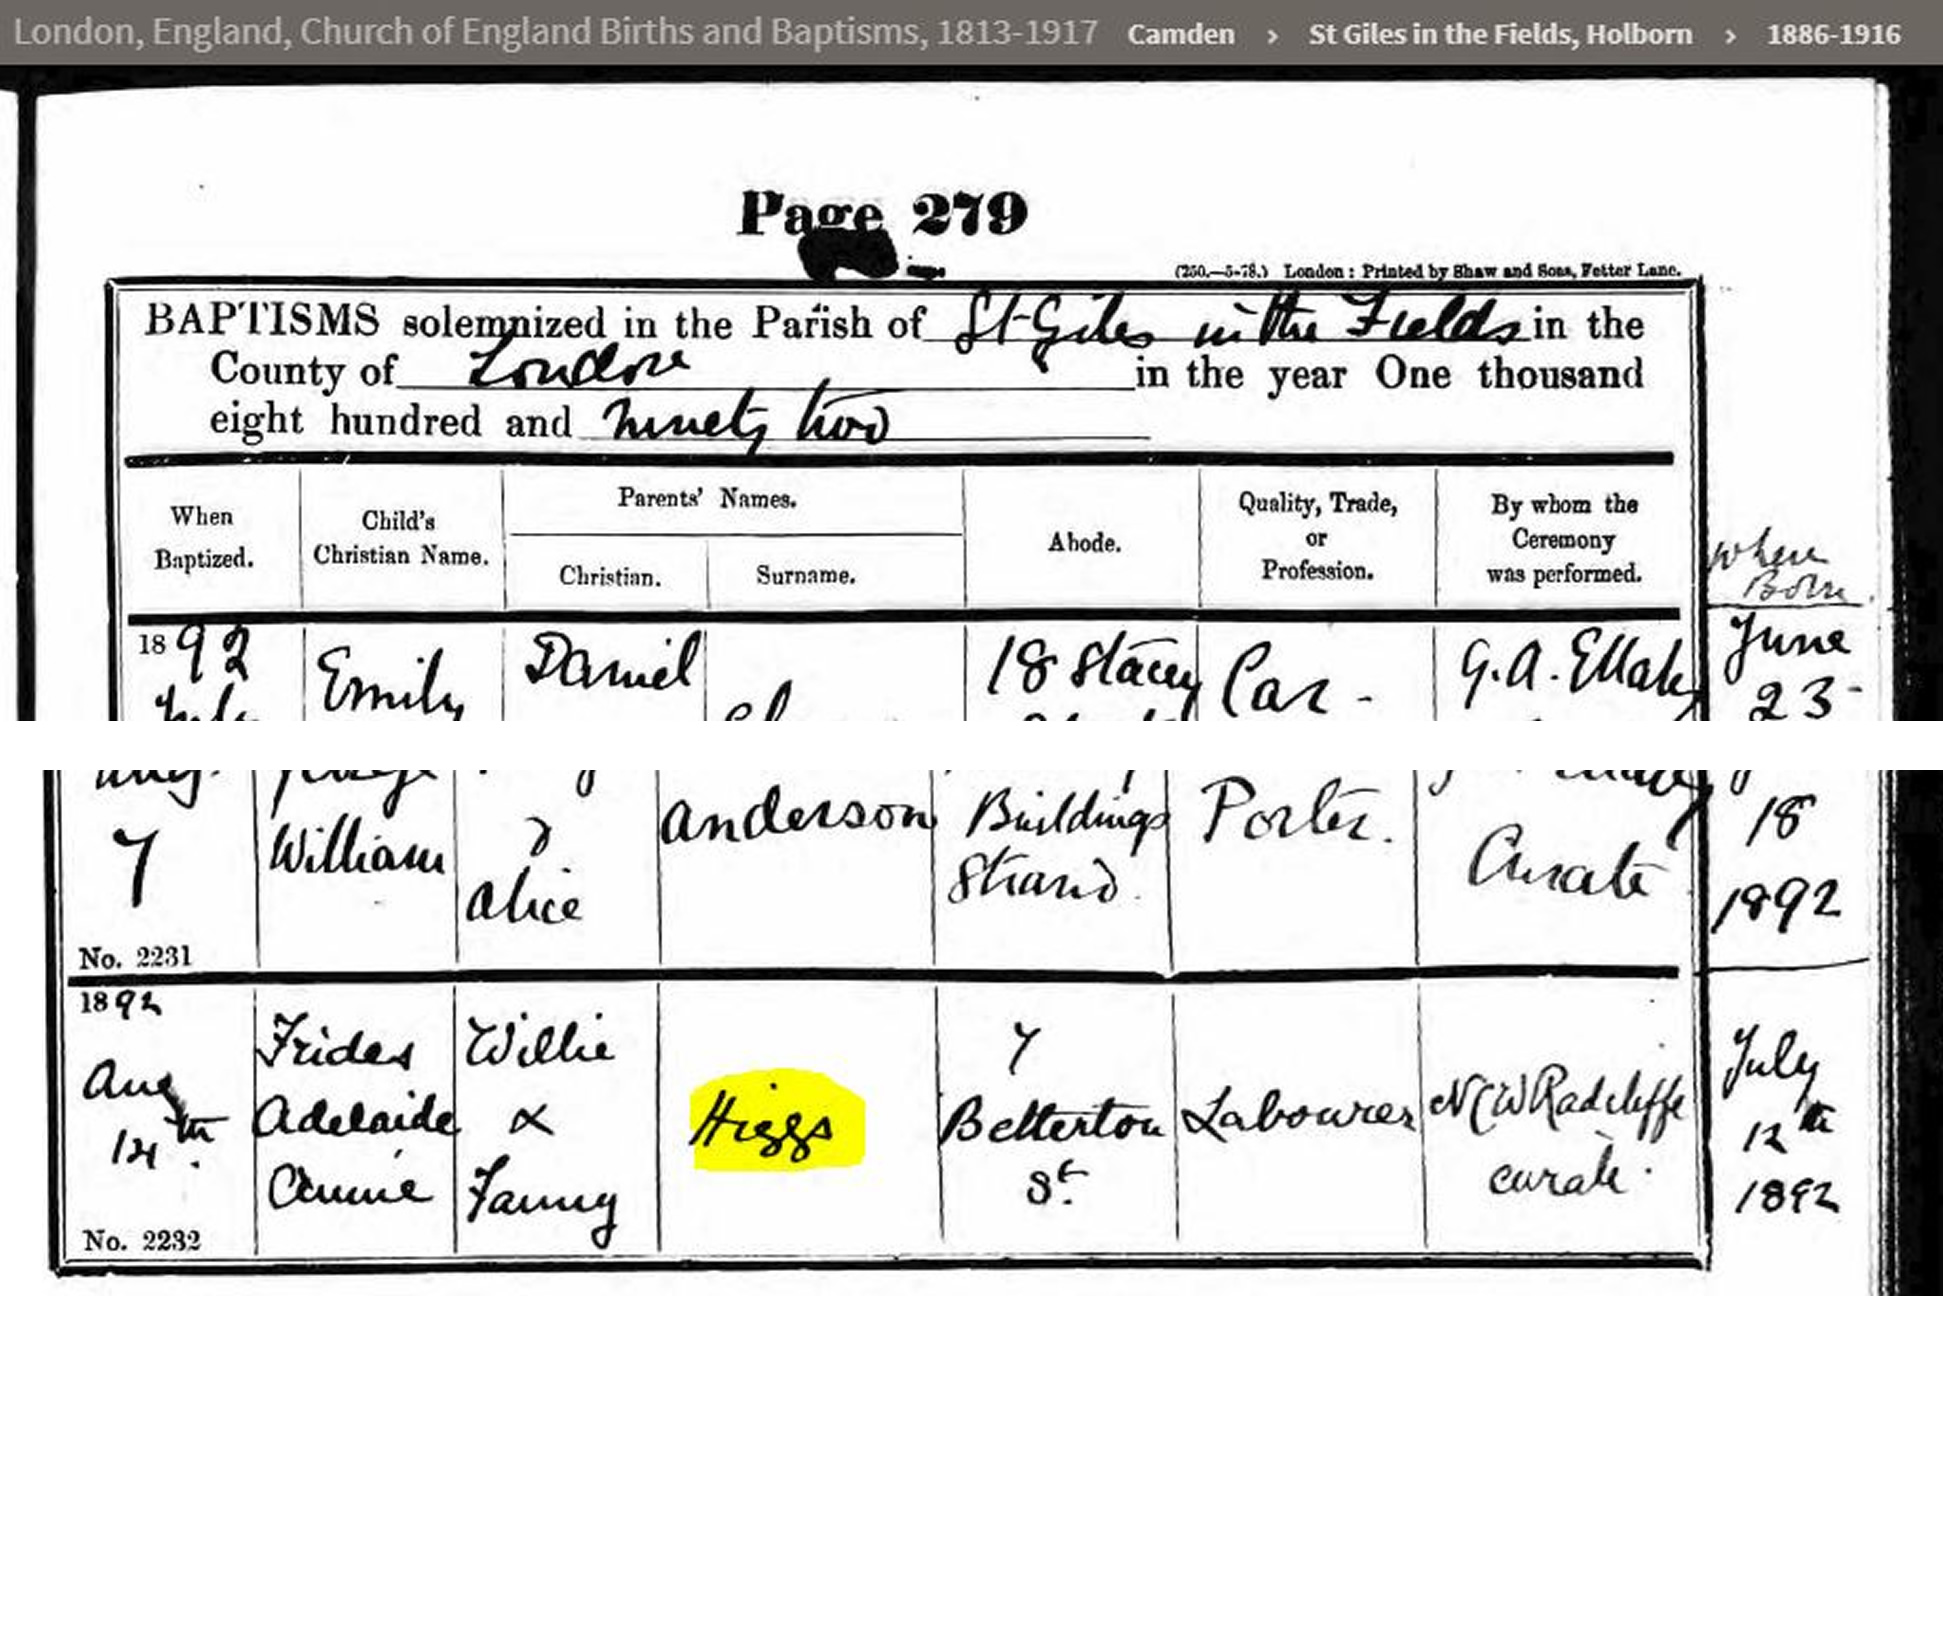 London, England, Church of England Births and Baptisms, 1813-1917 Camden › St Giles in the Fields, Holborn › 1886-1916
Page 279
(250.—5-78.) London : Printed by Shaw and Sons, Fetter Lane.
BAPTISMS solemnized in the Parish of St Giles in the Fields in the
County of London in the year One thousand
eight hundred and ninety two
When
Baptized.
Child's
Christian Name.
Parents' Names.
Christian.
Surname.
Abode.
Quality, Trade,
or
Profession.
By whom the
Ceremony
was performed.
When
Born
1892
July
Emily
Daniel
18 Stacey
Car -
June
23
7
William
&
Alice
Anderson
Buildings
Strand.
Porter.
Curate
18
1892
No. 2231
1892
Aug
14th.
Frides
Adelaide
Annie
Willie
&
Fanny
Higgs
7
Betterton
St.
Labourer
N C W Radcliffe
curate.
July
12th
1892
No. 2232